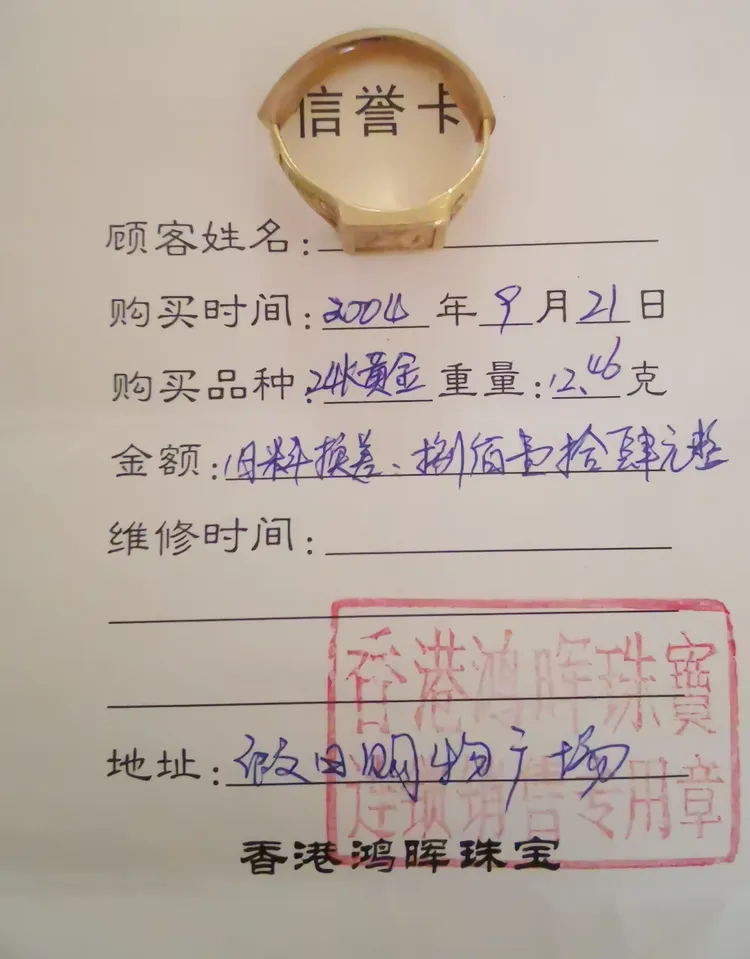 信誉卡
顾客姓名:
购买时间:2004年9月21日
购买品种:24K黄金重量:12.46克
金额:旧料换差、捌佰壹拾肆元整
维修时间:
香港鸿晖珠寶
连锁销售专用章
地址:假日购物广场
香港鸿晖珠宝